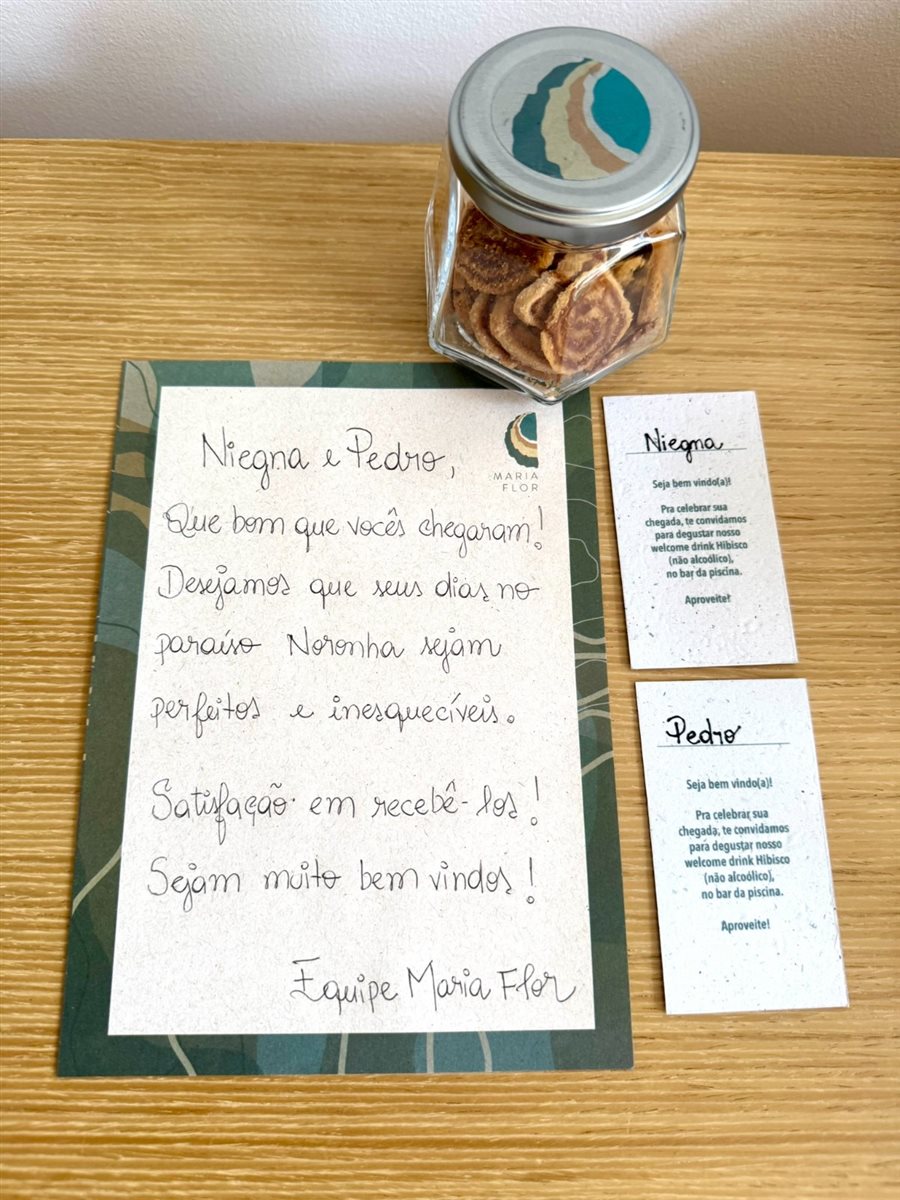 Niegna e Pedro,
MARIA
FLOR
Que bom que vocês chegaram!
Desejamos que seus dias no
paraíso Noronha sejam
perfeitos e inesquecíveis.
Satisfação em recebê-los!
Sejam muito bem vindos!
Equipe Maria Flor
Niegna
Seja bem vindo(a)!
Pra celebrar sua
chegada, te convidamos
para degustar nosso
welcome drink Hibisco
(não alcoólico),
no bar da piscina.
Aproveite!
Pedro
Seja bem vindo(a)!
Pra celebrar sua
chegada, te convidamos
para degustar nosso
welcome drink Hibisco
(não alcoólico),
no bar da piscina.
Aproveite!